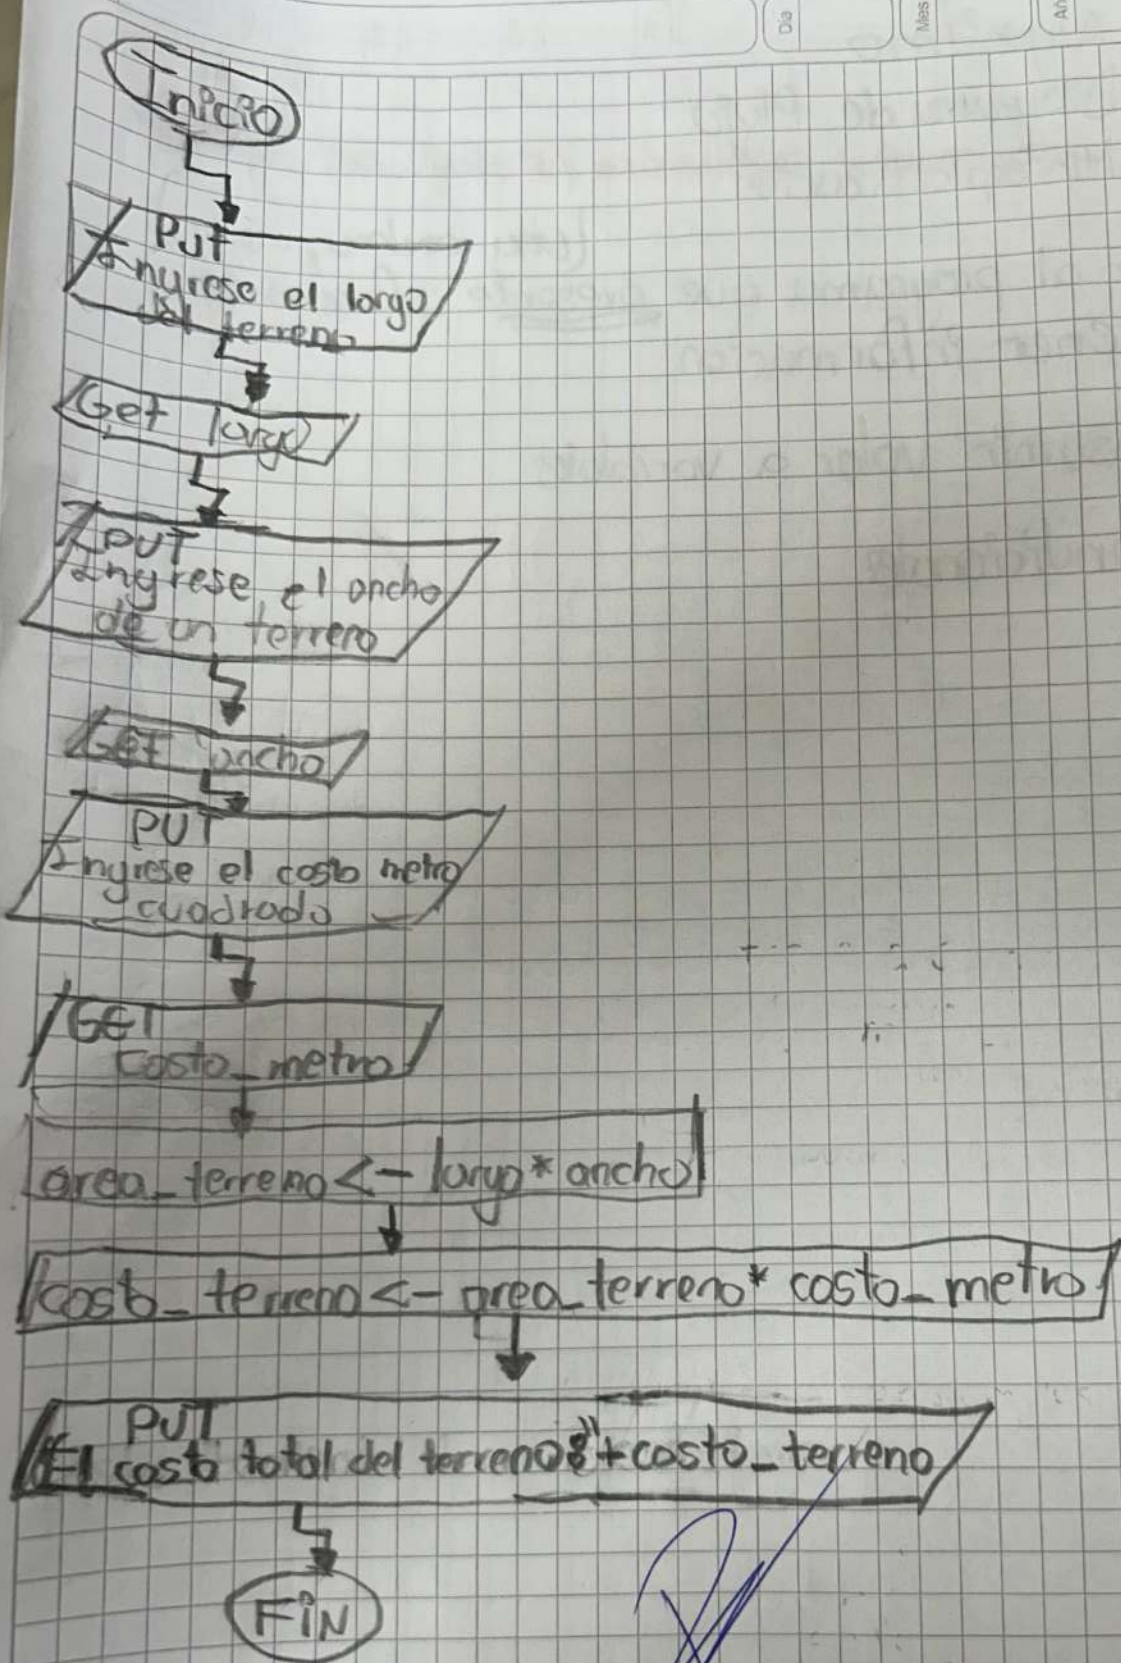 Dia
Mes
Inicio
PUT
Ingrese el largo
del terreno
Get largo
PUT
Ingrese el ancho
de un terreno
GET ancho
PUT
Ingrese el costo metro
cuadrado
GET
costo_metro
area_terreno <- largo * ancho
costo_terreno <- area_terreno * costo_metro
PUT
"El costo total del terreno:" + costo_terreno
FIN